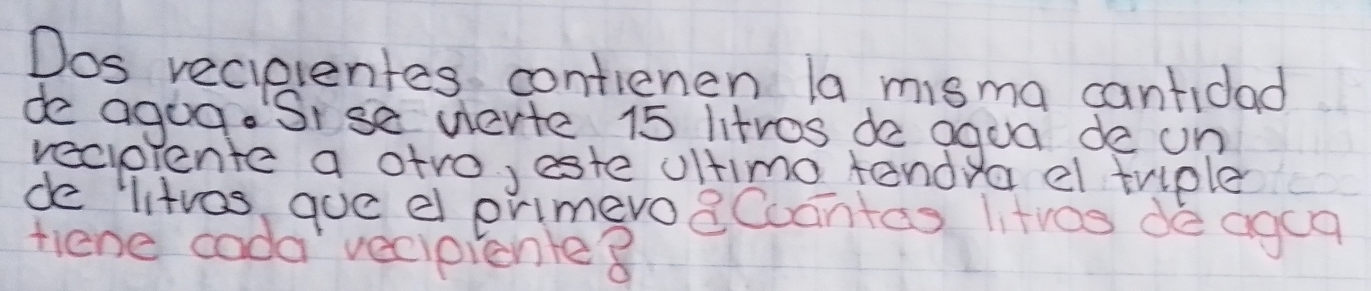 Dos recipientes contienen la misma cantidad
de agua. Si se vierte 15 litros de agua de un
recipiente a otro, este ultimo tendra el triple
de litros que el primero ¿Cuántos litros de agua
tiene cada recipiente?